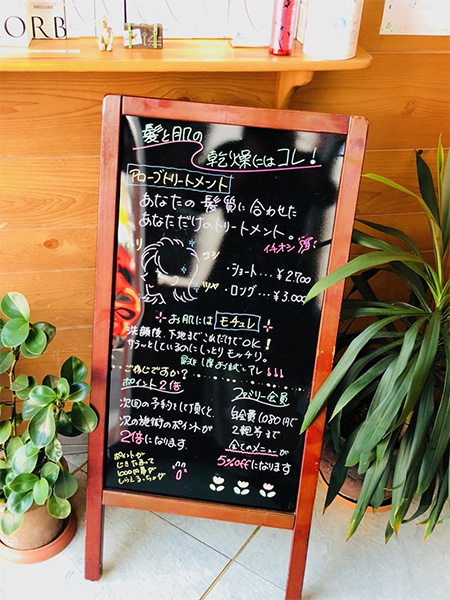 ORB
髪と肌の
乾燥にはコレ！
アローブトリートメント
あなたの髪質に合わせた
あなただけのトリートメント。
イチオシ
ハリ
コシ
ツヤ
・ショート…￥2.700
・ロング…￥3.000
お肌には モチュレ
洗顔後、下地までこれだけでOK！
サラッとしているのにしっとりモッチリ。
是非1度お試し下さい↓↓↓
ご存じですか？
ポイント2倍
次回の予約をして頂くと、
次の施術のポイントが
2倍になります
ポイントが
ファミリー会員
年会費1080円で
2親等まで
全てのメニューが
5%offになります